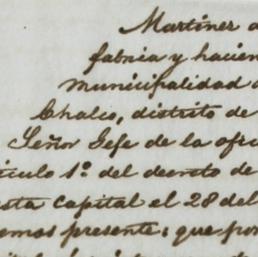 Martinez d
fabrica y hacien
municipalidad d
Chalco, distrito de
Señor Gefe de la ofi
ículo 1º del decreto de
esta capital el 28 del
emos presente: que por